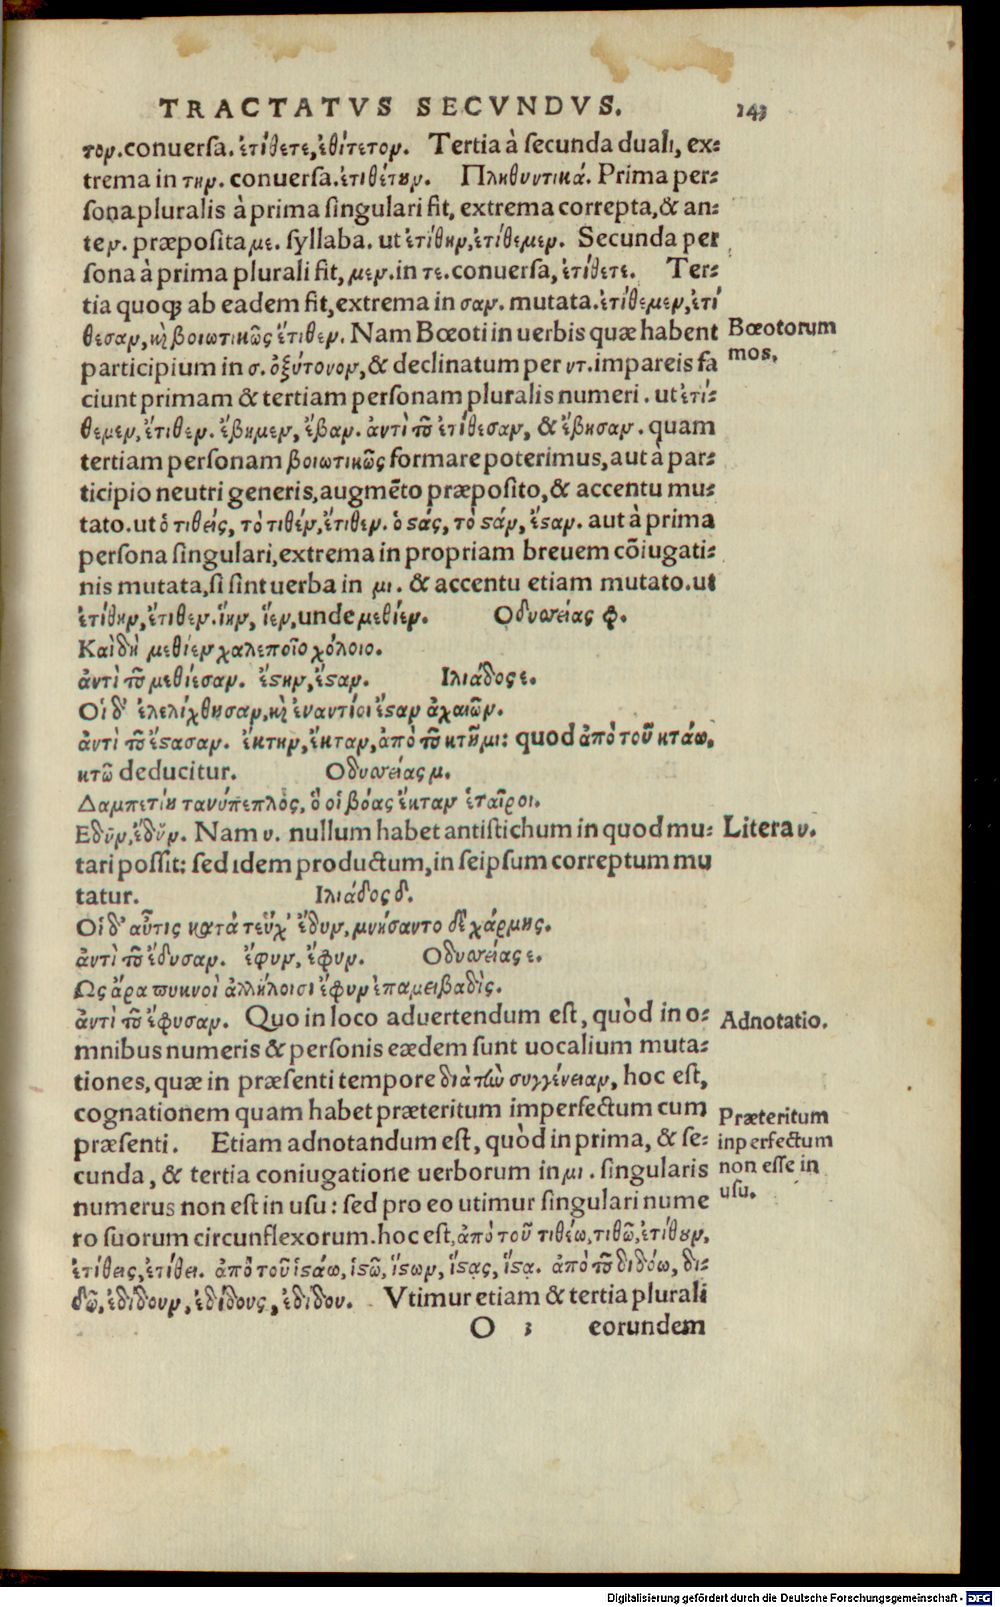 TRACTATVS SECVNDVS. 143
τον. conuersa. ἐτίθετε, ἐθίτετον. Tertia à secunda duali, ex-
trema in την. conuersa. ἐτιθέτην. Πληθυντικά. Prima per-
sona pluralis à prima singulari fit, extrema correpta, & an-
te ν. præposita με. syllaba. ut ἐτίθην, ἐτίθεμεν. Secunda per
sona à prima plurali fit, μεν. in τε. conuersa, ἐτίθετε. Ter-
tia quoq; ab eadem fit, extrema in σαν. mutata. ἐτίθεμεν, ἐτί
θεσαν, κὶ βοιωτικῶς ἔτιθεν. Nam Bœoti in uerbis quæ habent
Bœotorum
mos.
participium in σ. ὀξύτονον, & declinatum per ντ. impareis fa
ciunt primam & tertiam personam pluralis numeri. ut ἐτί-
θεμεν, ἔτιθεν. ἔβημεν, ἔβαν. ἀντὶ τοῦ ἐτίθεσαν, & ἔβησαν. quam
tertiam personam βοιωτικῶς formare poterimus, aut à par-
ticipio neutri generis, augmēto præposito, & accentu mu-
tato. ut ὁ τιθεὶς, τὸ τιθέν, ἔτιθεν. ὁ ϛάς, τὸ ϛάν, ἔϛαν. aut à prima
persona singulari, extrema in propriam breuem cōiugati-
nis mutata, si sint uerba in μι. & accentu etiam mutato. ut
ἐτίθην, ἔτιθεν. ἵην, ἵεν, unde μεθίεν. Οδυσσείας φ.
Καὶ δὴ μεθίεν χαλεποῖο χόλοιο.
ἀντὶ τοῦ μεθίεσαν. ἔϛην, ἔϛαν. Ιλιάδος ε.
Οἱ δ' ἐλελίχθησαν, κὶ ἐναντίοι ἔϛαν ἀχαιῶν.
ἀντὶ τοῦ ἔϛασαν. ἔκτην, ἔκταν, ἀπὸ τοῦ κτῆμι: quod ἀπὸ τοῦ κτάω,
κτῶ deducitur. Οδυσσείας μ.
Λαμπετίη τανύπεπλος, ὅ οἱ βόας ἔκταν ἑταῖροι.
Εδῦν, ἔδυν. Nam υ. nullum habet antistichum in quod mu-
Litera υ.
tari possit: sed idem productum, in seipsum correptum mu
tatur. Ιλιάδος δ.
Οἱ δ' αὖτις κατὰ τεύχε' ἔδυν, μνήσαντο δὲ χάρμης.
ἀντὶ τοῦ ἔδυσαν. ἔφυν, ἔφυν. Οδυσσείας ε.
Ως ἄρα πυκνοὶ ἀλλήλοισι ἔφυν ἐπαμειβαδὶς.
ἀντὶ τοῦ ἔφυσαν. Quo in loco aduertendum est, quòd in o-
Adnotatio.
mnibus numeris & personis eædem sunt uocalium muta-
tiones, quæ in præsenti tempore διὰ τὼ συγγένειαν, hoc est,
cognationem quam habet præteritum imperfectum cum
præsenti. Etiam adnotandum est, quòd in prima, & se-
Præteritum
inperfectum
non esse in
usu.
cunda, & tertia coniugatione uerborum in μι. singularis
numerus non est in usu: sed pro eo utimur singulari nume
ro suorum circunflexorum. hoc est, ἀπὸ τοῦ τιθέω, τιθῶ, ἐτίθουν,
ἐτίθεις, ἐτίθει. ἀπὸ τοῦ ἱϛάω, ἱϛῶ, ἵϛων, ἵϛας, ἵϛα. ἀπὸ τοῦ διδόω, δι-
δῶ, ἐδίδουν, ἐδίδους, ἐδίδου. Vtimur etiam & tertia plurali
O 3 eorundem
Digitalisierung gefördert durch die Deutsche Forschungsgemeinschaft - DFG